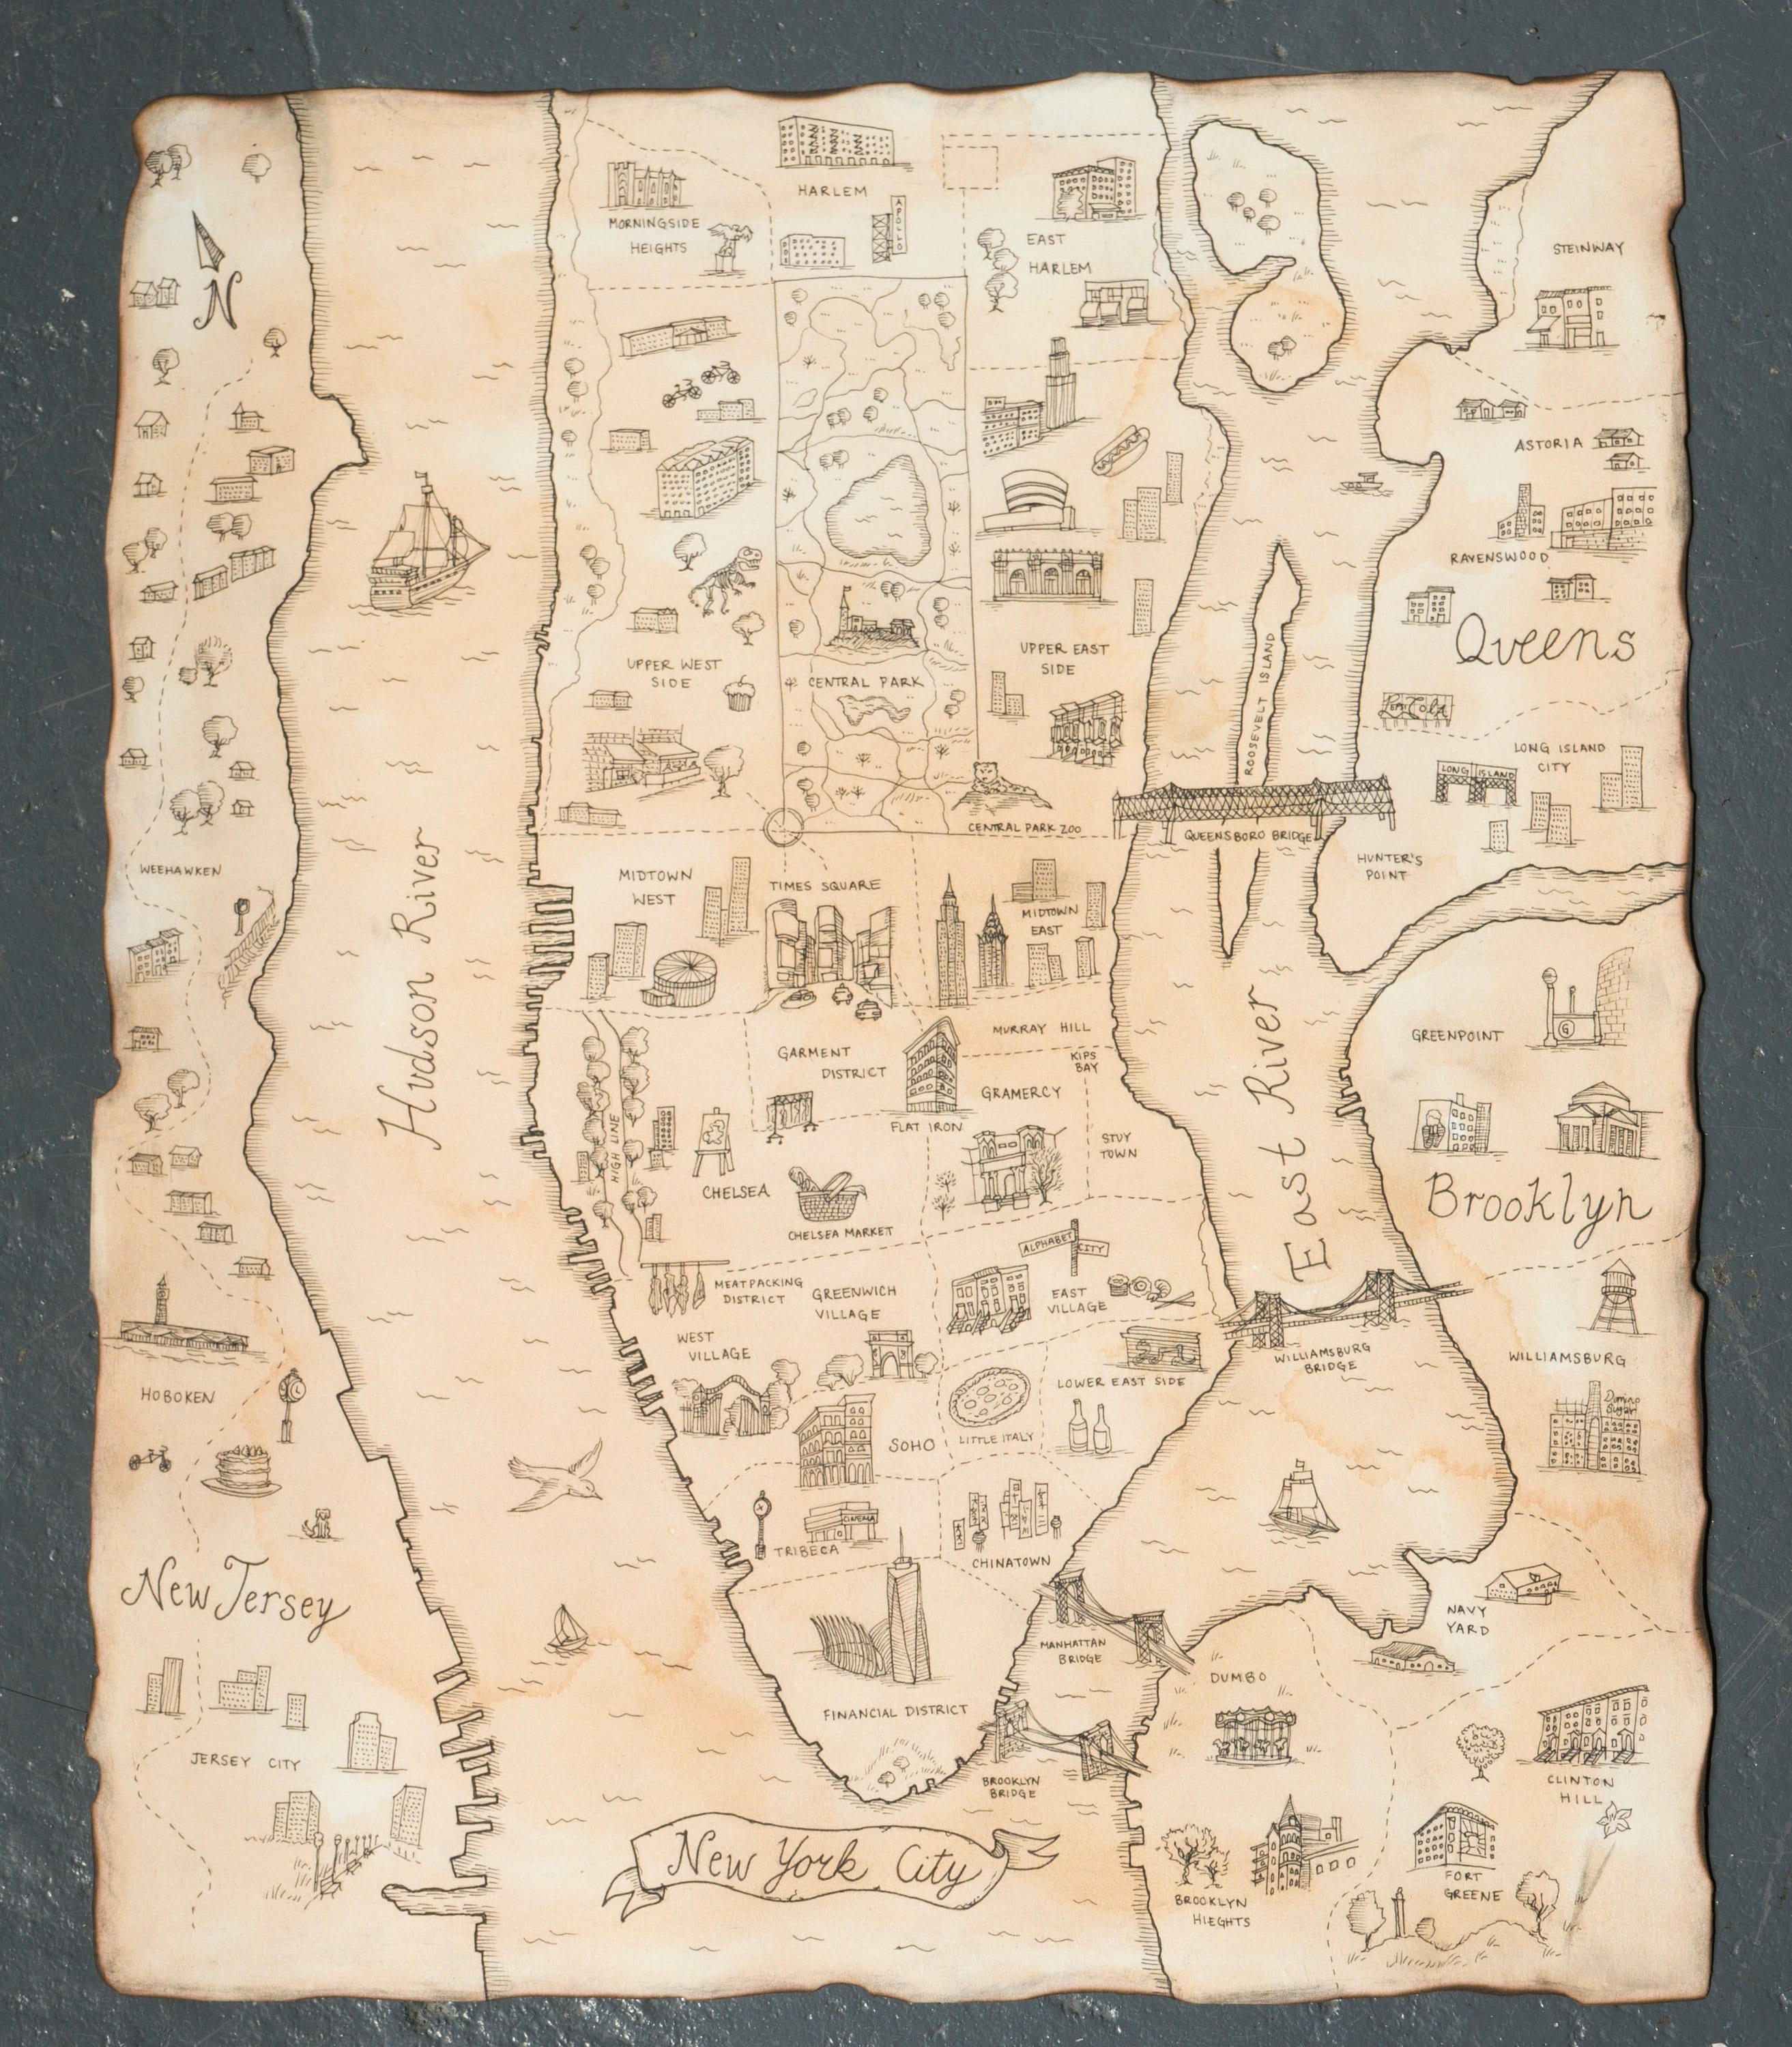 HARLEM
APOLLO
MORNINGSIDE
HEIGHTS
EAST
HARLEM
STEINWAY
N
ASTORIA
RAVENSWOOD
Queens
UPPER WEST
SIDE
CENTRAL PARK
UPPER EAST
SIDE
ROOSEVELT ISLAND
LONG ISLAND
CITY
LONG ISLAND
CENTRAL PARK ZOO
QUEENSBORO BRIDGE
HUNTER'S
POINT
WEEHAWKEN
Hudson River
MIDTOWN
WEST
TIMES SQUARE
MIDTOWN
EAST
East River
MURRAY HILL
GARMENT
DISTRICT
KIPS
BAY
GRAMERCY
FLAT IRON
STUY
TOWN
GREENPOINT
G
HIGH LINE
CHELSEA
CHELSEA MARKET
Brooklyn
ALPHABET CITY
MEATPACKING
DISTRICT
GREENWICH
VILLAGE
EAST
VILLAGE
WEST
VILLAGE
WILLIAMSBURG
BRIDGE
WILLIAMSBURG
LOWER EAST SIDE
HOBOKEN
Domino
Sugar
SOHO
LITTLE ITALY
CINEMA
TRIBECA
CHINATOWN
New Jersey
NAVY
YARD
MANHATTAN
BRIDGE
DUMBO
FINANCIAL DISTRICT
JERSEY CITY
BROOKLYN
BRIDGE
CLINTON
HILL
New York City
FORT
GREENE
BROOKLYN
HIEGHTS